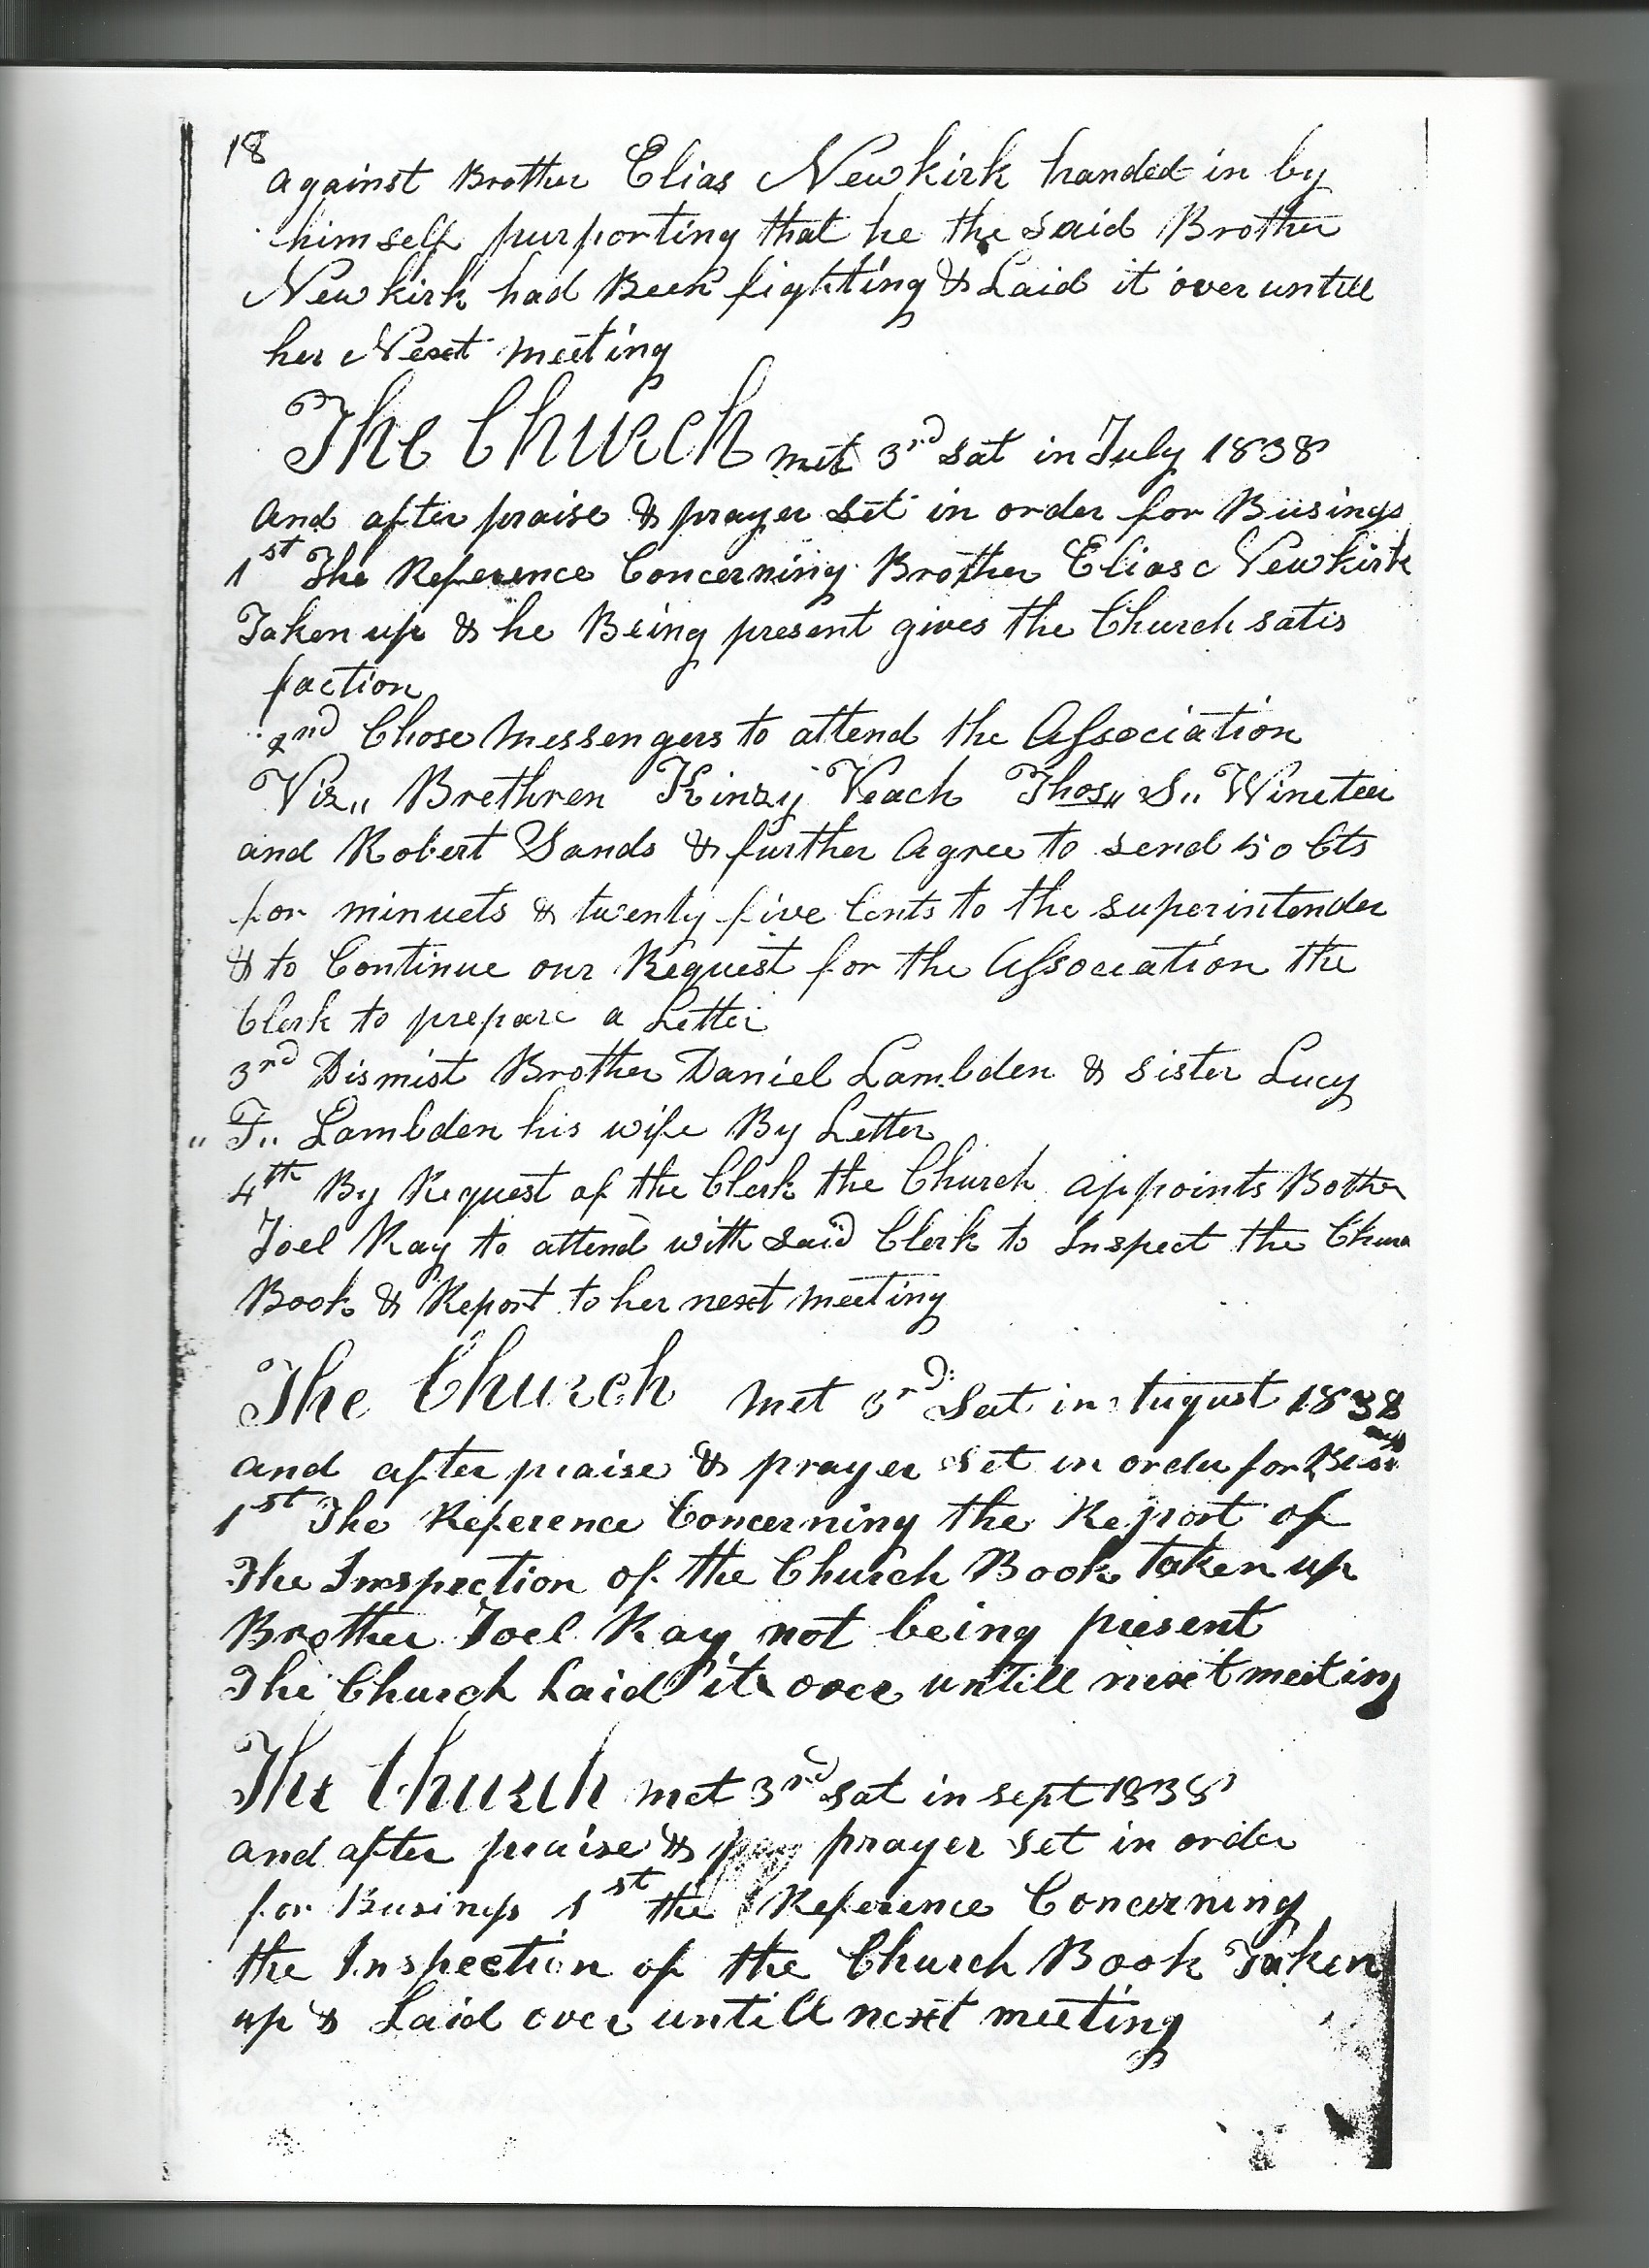 18
against Brother Elias Newkirk handed in by
himself purporting that he the said Brother
Newkirk had Been fighting & Laid it over untill
her Next meeting
The Church met 3rd sat in July 1838
and after praise & prayer set in order for Busings
1st The Reference Concerning Brother Elias Newkirk
Taken up & he Being present gives the Church satis
faction
2nd Chose messengers to attend the Association
Viz,, Brethren Kinzy Veach Thos,, S,,
and Robert Sands & further agree to send 50 Cts
for minuets & twenty five Cents to the superintender
& to Continue our Request for the Association the
Clerk to prepare a Letter
3rd Dismist Brother Daniel Lambden & sister Lucy
,, F,, Lambden his wife By Letter
4th By Request of the Clerk the Church appoints Bother
Joel Ray to attend with said Clerk to Inspect the
Book & Report to her next meeting
The Church met 3rd Sat in August 1838
and after praise & prayer set in order for
1st The Reference Concerning the Report of
The Inspection of the Church Book taken up
Brother Joel Ray not being present
The Church Laid it over untill next meeting
The Church met 3rd sat in sept 1838
and after praise & prayer set in order
for Busings 1st the Reference Concerning
the Inspection of the Church Book Taken
up & Laid over untill next meeting